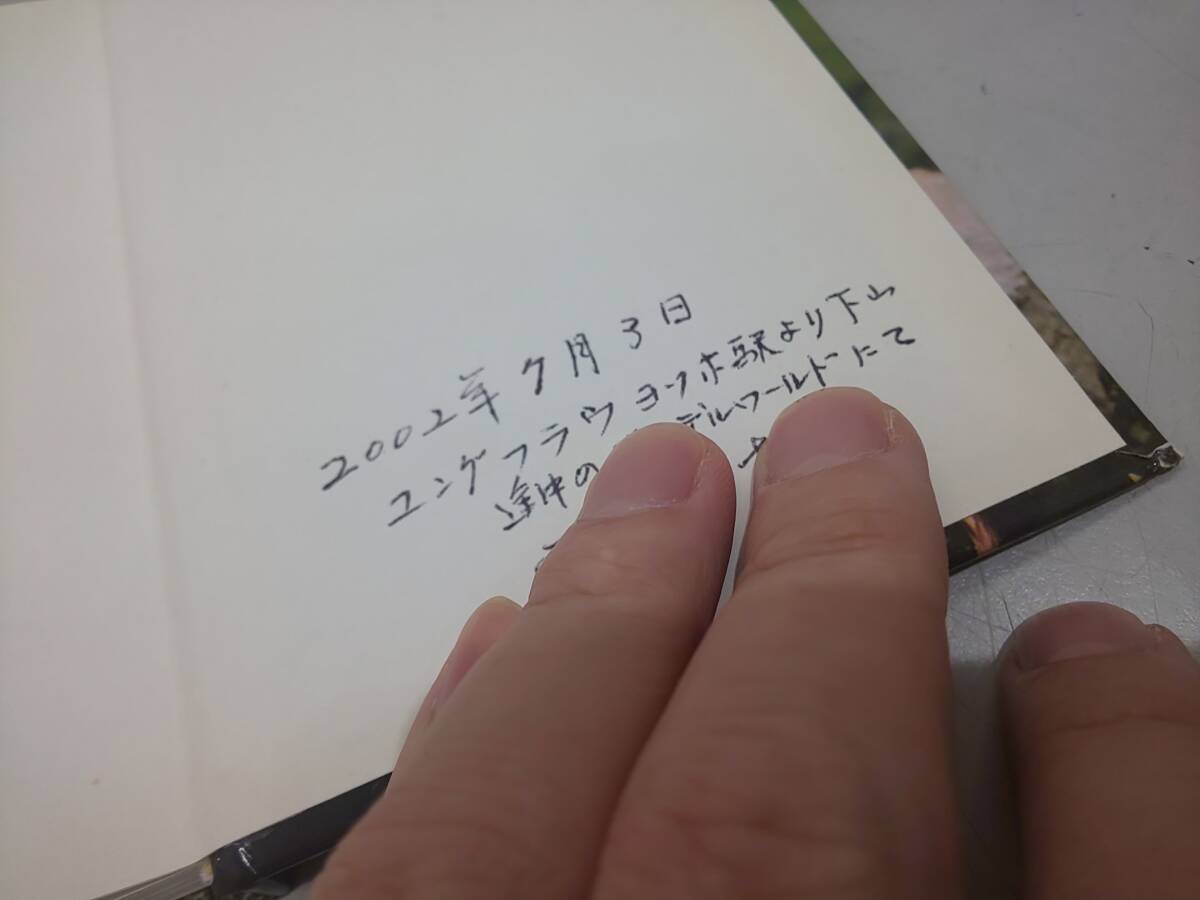 2002年7月3日
ユングフラウヨッホ駅より下山
途中の デルワールドにて